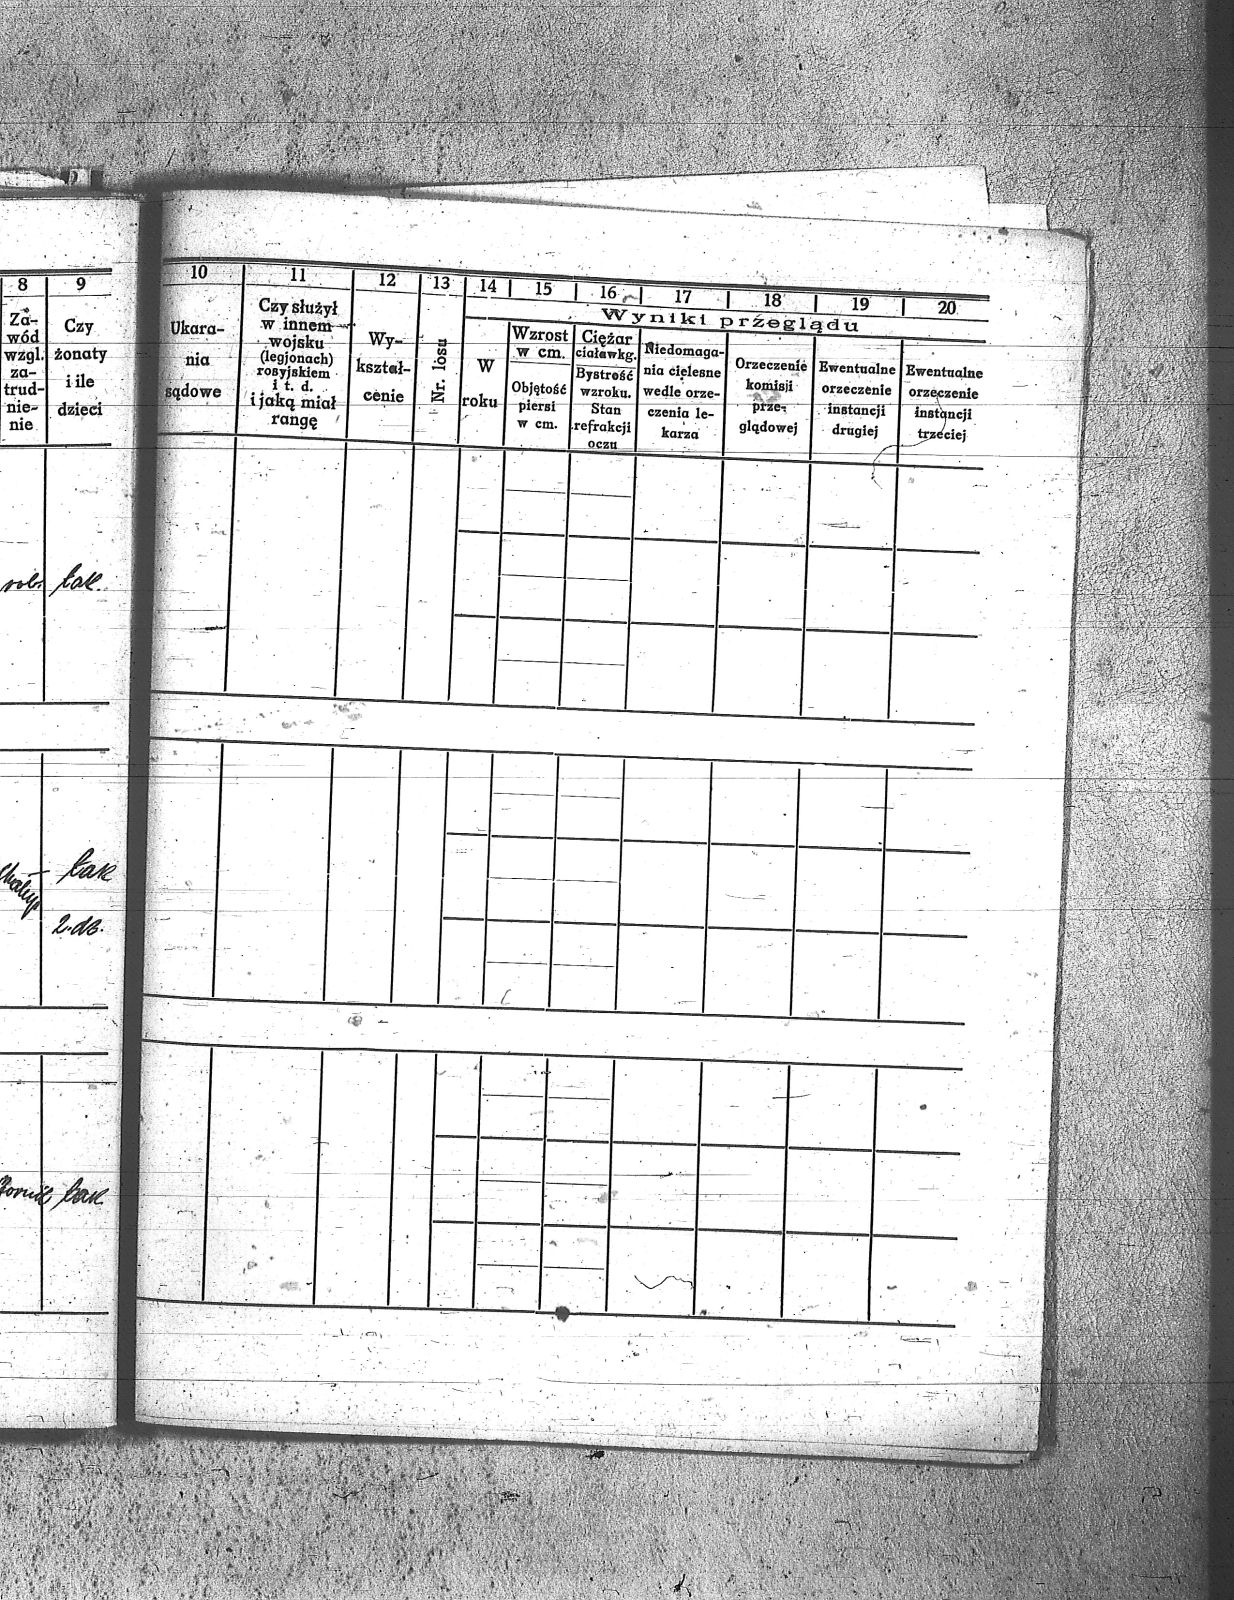 8 9
Za-
wód
wzgl.
za-
trud-
nie-
nie
Czy
żonaty
i ile
dzieci
rob. tak.
tak
2. dz.
tak
10 11 12 13 14 15 16 17 18 19 20
Ukara-
nia
sądowe
Czy służył
w innem
wojsku
(legjonach)
rosyjskiem
i t. d.
i jaką miał
rangę
Wy-
kształ-
cenie
Nr. losu
Wyniki przeglądu
W
roku
Wzrost
w cm.
Objętość
piersi
w cm.
Ciężar
ciała w kg.
Bystrość
wzroku.
Stan
refrakcji
oczu
Niedomaga-
nia cielesne
wedle orze-
czenia le-
karza
Orzeczenie
komisji
prze-
glądowej
Ewentualne
orzeczenie
instancji
drugiej
Ewentualne
orzeczenie
instancji
trzeciej